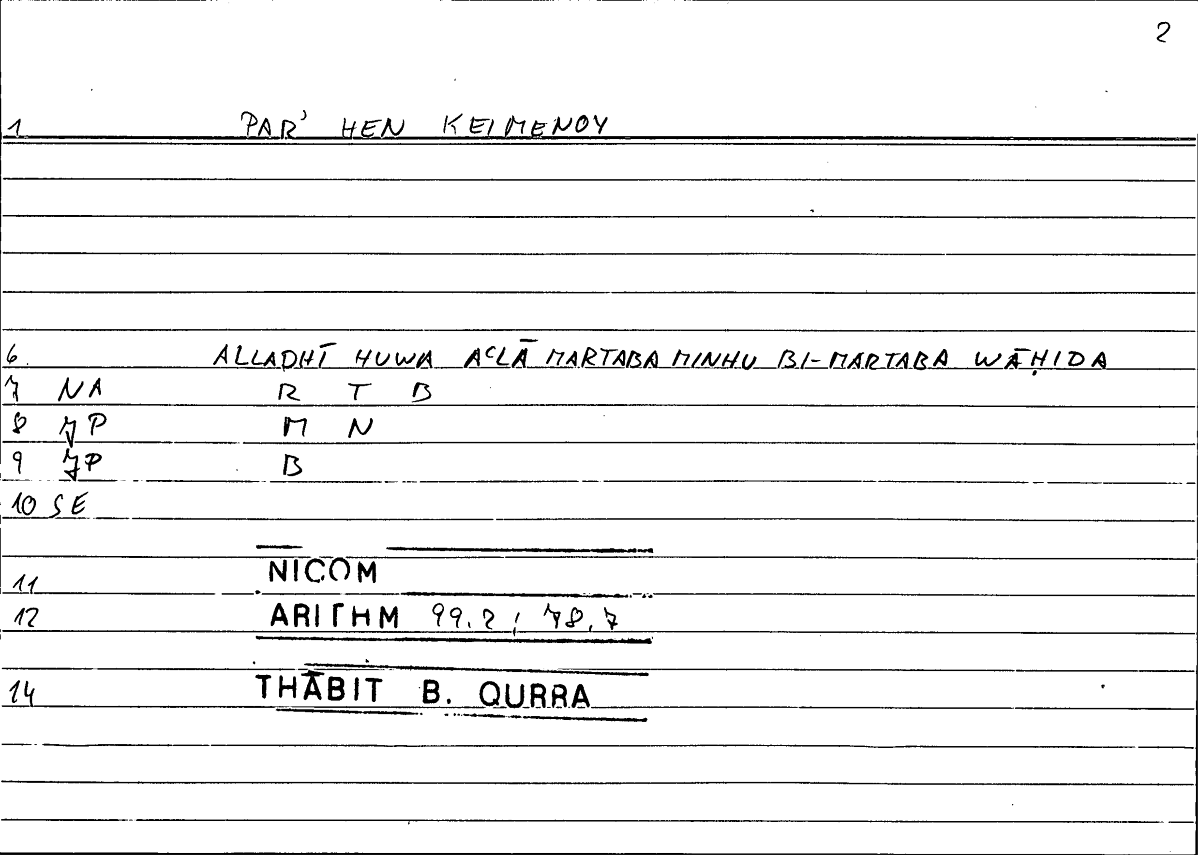 2
1 PAR' HEN KEIMENOY
6. ALLADHĪ HUWA AᶜLĀ MARTABA MINHU BI-MARTABA WĀḤIDA
7 NA R T B
8 JP M N
9 JP B
10 SE
11 NICOM
12 ARITHM 99.2; 78,7
14 THĀBIT B. QURRA